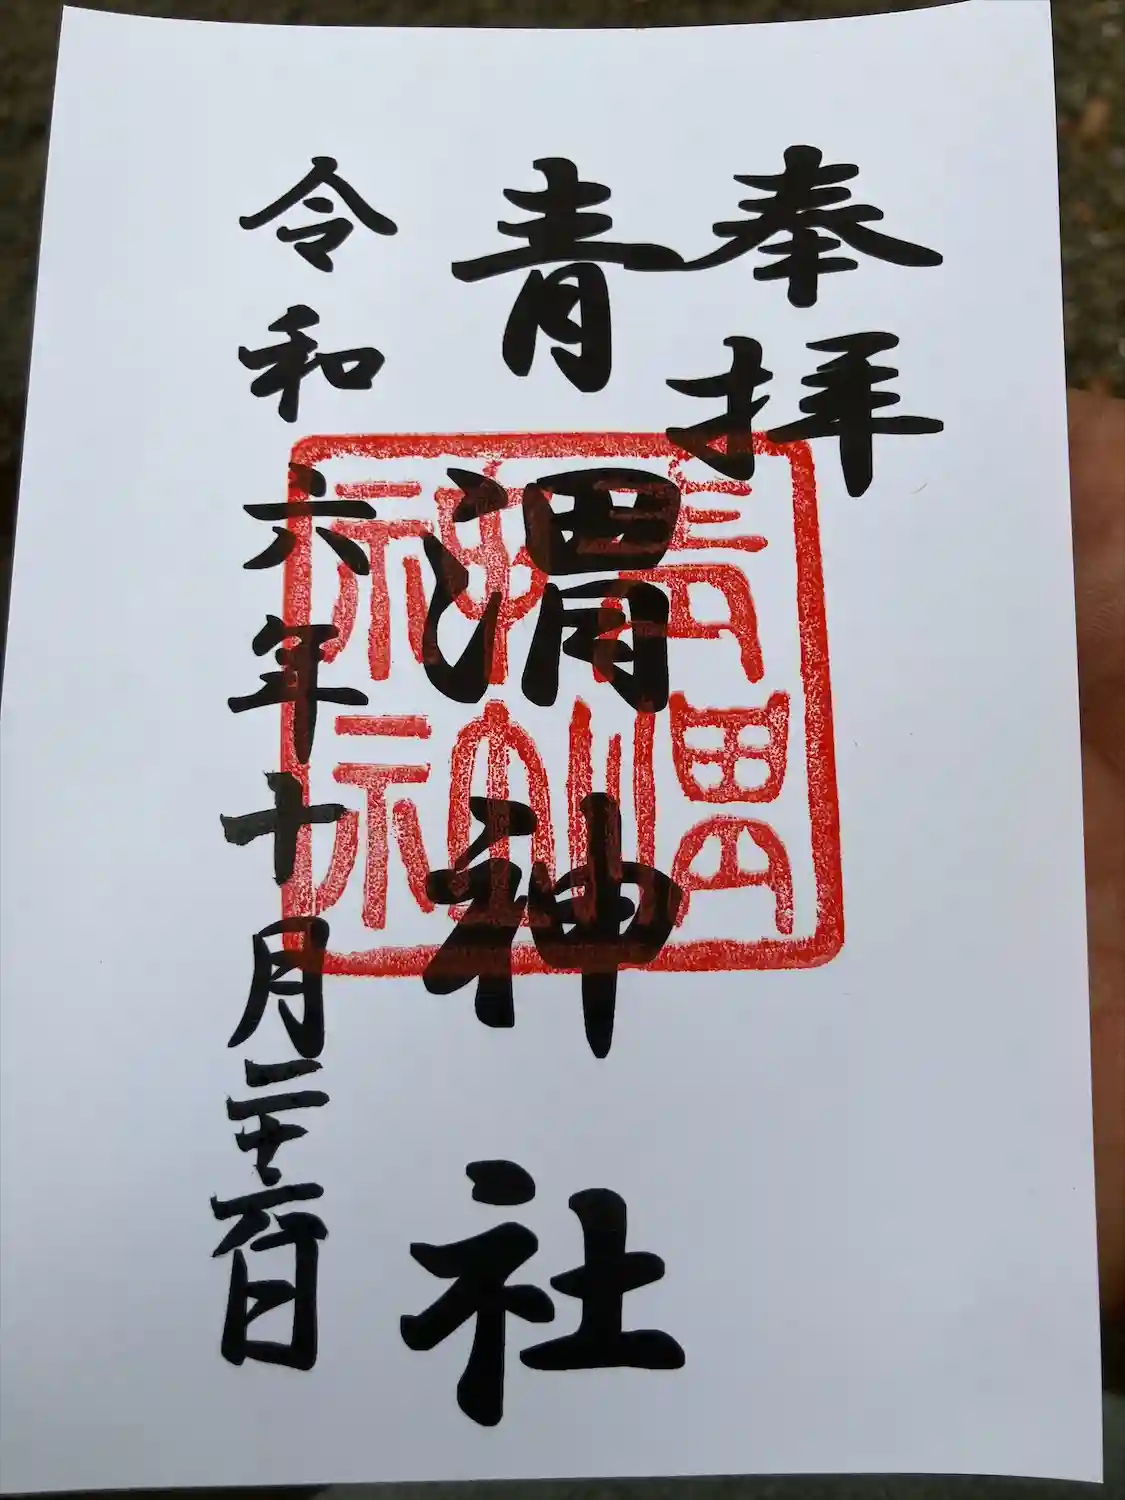 奉拝
青渭神社
令和六年十月二十六日
青渭神社